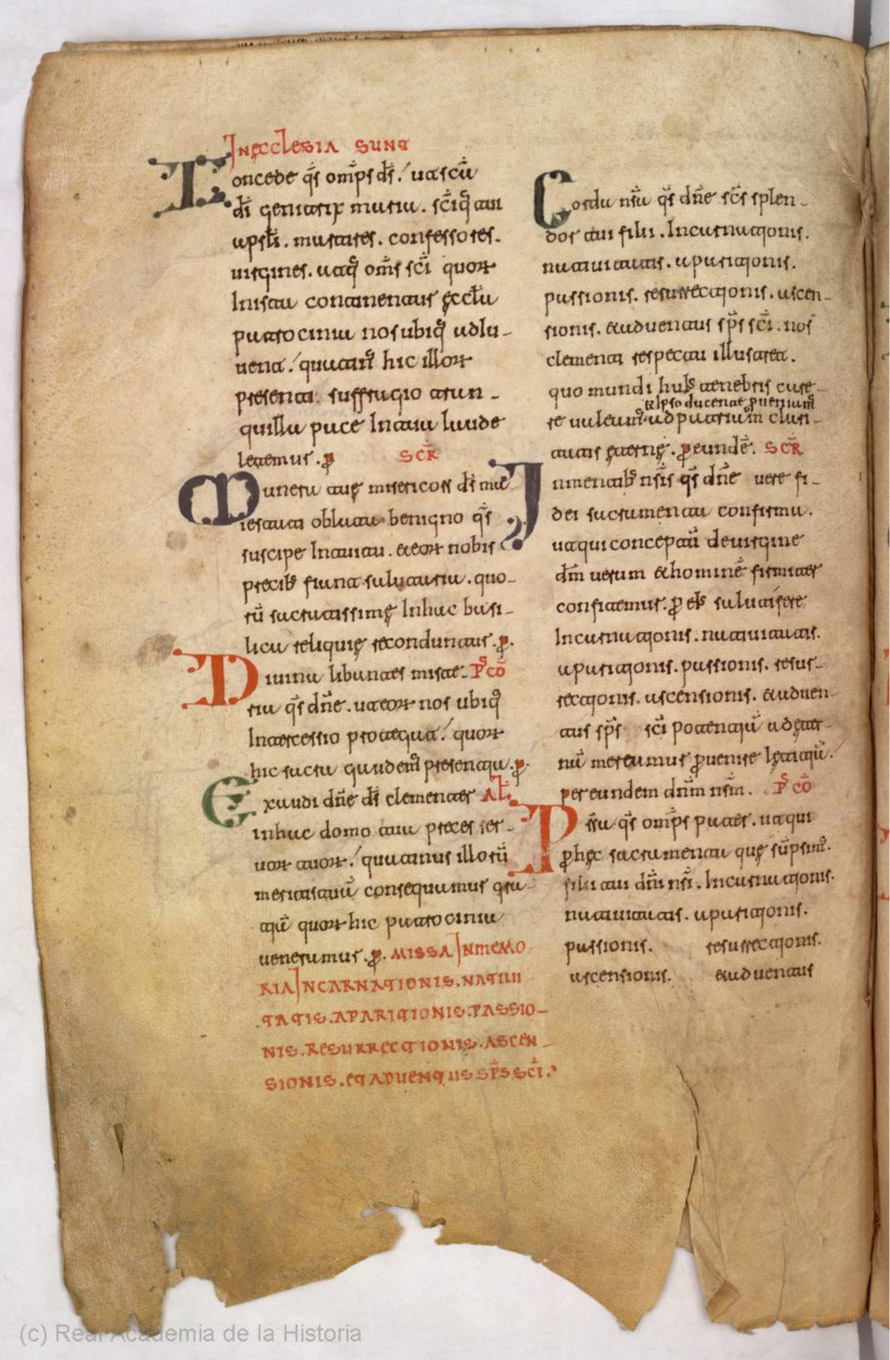 In ęcclesia sunt
Concede q̄s omp̄s d̄s. ut scā
dī genitrix maria. sc̄iq; tui
apsłi. martires. confessores.
uirgines. atq; om̄s sc̄i quor
In ista continentur ęccła
patrocinia nos ubiq; adiu-
uent. quatin⁹ hic illor
presenti suffragio tran-
quilla pace In tua laude
letemur. ꝑ SCR̄
Munera tuę misericors d̄s ma
iestati oblata benigno q̄s
suscipe Intuitu. et eor nobis
precib; fiant salutaria. quo-
rū sacratissimę In hac basi-
lica reliquię reconduntur. ꝑ.
Diuina libantes miste- P̄S CŌ
ria q̄s dn̄e. ut eor nos ubiq;
Intercessio protegat. quor
hic sacra gaudem⁹ presentia. ꝑ.
Exaudi dn̄e d̄s clementer AL̄
in hac domo tua preces ser-
uor tuor. quatinus illorū
meritis tuā consequamur gra-
tiā quor hic patrocinia
ueneramur. ꝑ. MISSA IN MEMO
RIA INCARNATIONIS. NATIUI
TATIS. APARITIONIS. PASSIO-
NIS. RESURRECTIONIS. ASCEN-
SIONIS. ET ADUENTUS SP̄S SC̄I.
Corda nr̄a q̄s dn̄e sc̄s splen-
dor tui filii. Incarnationis.
natiuitatis. aparitionis.
passionis. resurrectionis. ascen-
sionis. et aduentus sp̄s sc̄i. nos
clementi respectu illustret.
quo mundi hui⁹ tenebris care-
et ipso ducente
re ualeam⁹. ad patriam clari-
tatis ęternę. ꝑ eundē. SCR̄
In mentib; nr̄is q̄s dn̄e uere fi-
dei sacramenta confirma.
ut qui conceptū de uirgine
dm̄ uerum et hominē firmiter
confitemur. ꝑ ei⁹ salutifere
Incarnationis. natiuitatis.
aparitionis. passionis. resur-
rectionis. ascensionis. et aduen-
tus sp̄s sc̄i potentiā ad ęter-
nā mereamur ꝑuenire lętitiā.
per eundem dnm̄ nr̄m. P̄S CŌ
Presta q̄s omp̄s pater. ut qui
ꝑ hęc sacramenta quę sūpsim⁹.
filii tui dn̄i nr̄i. Incarnationis.
natiuitatis. aparitionis.
passionis. resurrectionis.
ascensionis. et aduentus
(c) Real Academia de la Historia